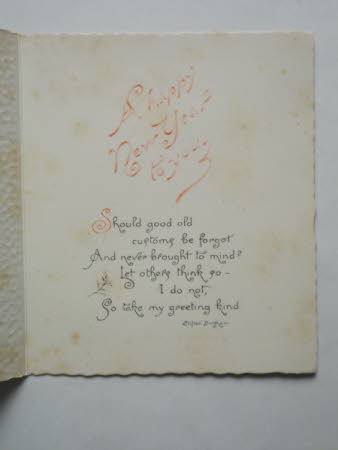 A happy
New Year
to you.
Should good old
customs be forgot
And never brought to mind?
Let others think so -
I do not,
So take my greeting kind